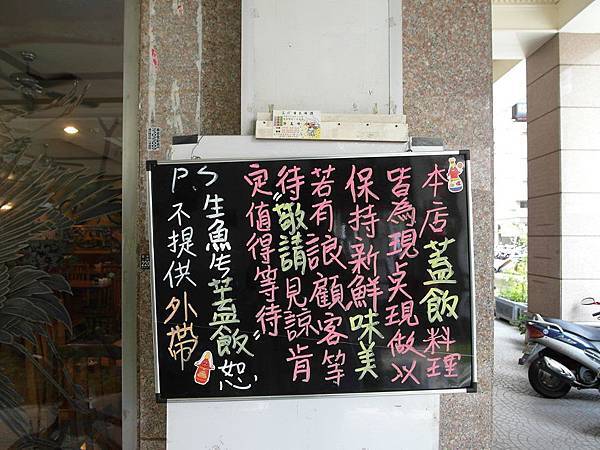 本店蓋飯料理
皆為現点現做以
保持新鮮味美
若有誏顧客等
待"敬請見諒肯
定值得等待"
PS生魚片蓋飯恕
不提供外帶